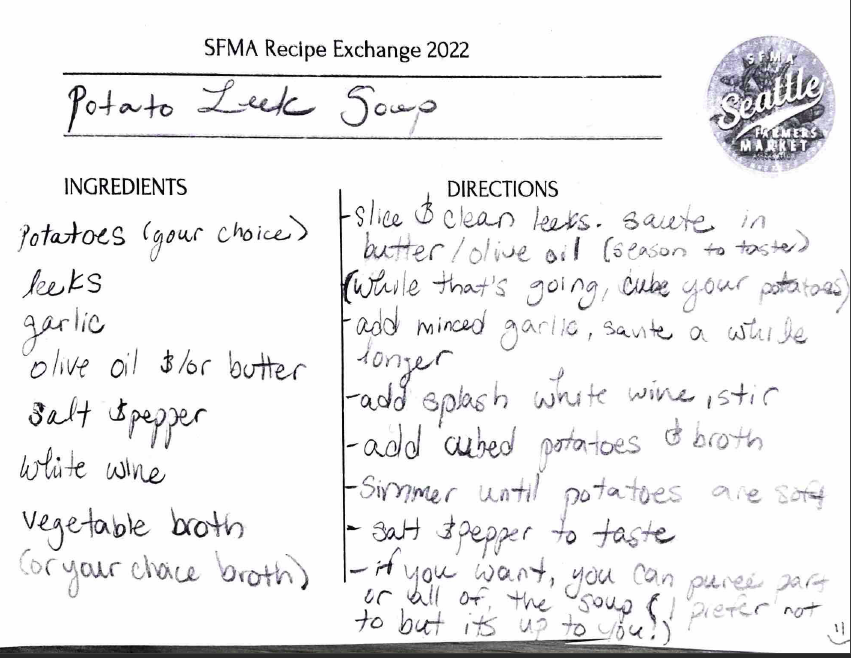 SFMA Recipe Exchange 2022
SFMA
Seattle
FARMERS
MARKET
Potato Leek Soup
INGREDIENTS
Potatoes (your choice)
leeks
garlic
olive oil &/or butter
Salt & pepper
White wine
Vegetable broth
(or your choice broth)
DIRECTIONS
-Slice & clean leeks. saute in
butter/olive oil (season to taste)
(While that's going, cube your potatoes)
-add minced garlic, saute a while
longer
-add splash white wine, stir
-add cubed potatoes & broth
-Simmer until potatoes are soft
- salt & pepper to taste
- if you want, you can pureé part
or all of the soup (I prefer not
to but its up to you!) :)